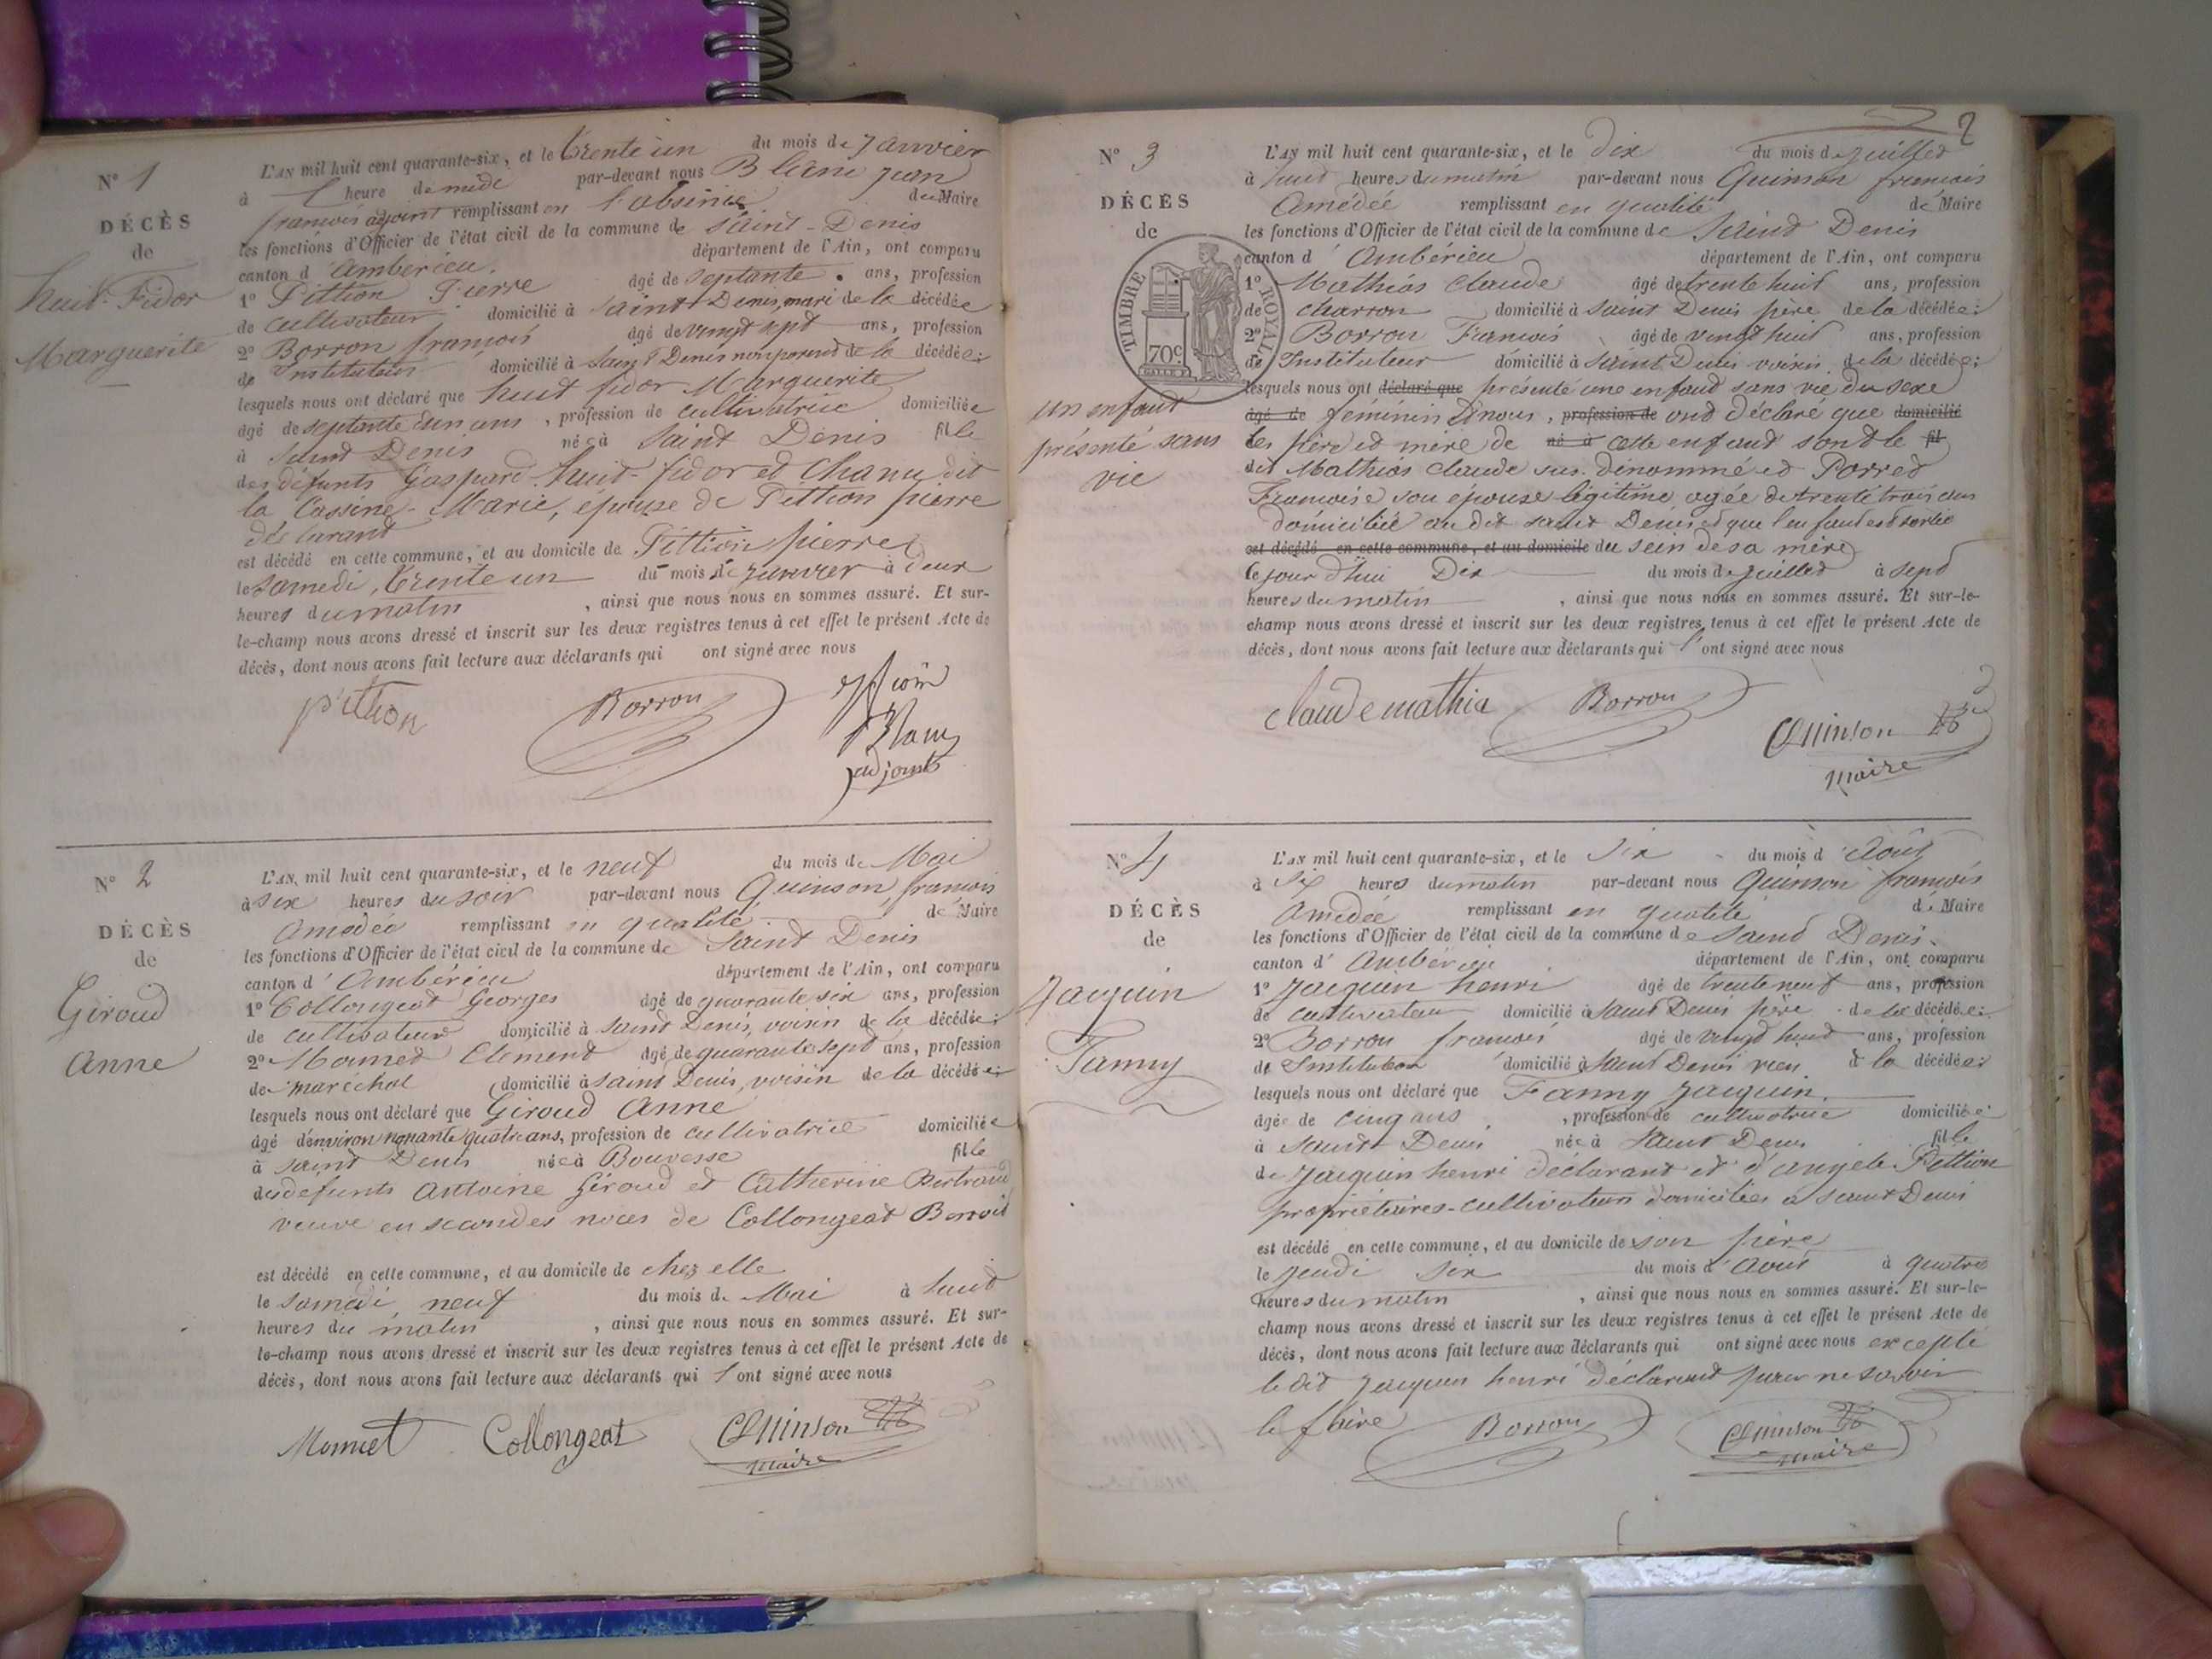 N° 1
DÉCÈS
de
huit-Fidor
Marguerite
L'AN mil huit cent quarante-six, et le trente un du mois de Janvier
à 1 heure de midi par-devant nous Blanc jean
francois adjoint remplissant en l'absence du Maire
les fonctions d'Officier de l'état civil de la commune de Saint-Denis
canton d'Ambérieu. département de l'Ain, ont comparu
1° Pittion Pierre âgé de septante ans, profession
de cultivateur domicilié à Saint Denis, mari de la décédée
2° Borron francois âgé de vingt sept ans, profession
de Instituteur domicilié à Saint Denis non parend de la décédée;
lesquels nous ont déclaré que huit fidor Marguerite
âgé de septante un ans, profession de cultivatrice domiciliée
à Saint Denis née à Saint Denis fille
des défunts Gaspard huit-fidor et Chanu dit
la Cassine-Marie, épouse de Pittion pierre
déclarant
est décédé en cette commune, et au domicile de Pittion pierre
le samedi, trente un du mois de janvier à deux
heures du matin, ainsi que nous nous en sommes assuré. Et sur-
le-champ nous avons dressé et inscrit sur les deux registres tenus à cet effet le présent Acte de
décès, dont nous avons fait lecture aux déclarants qui ont signé avec nous
pittion Borron
Blanc
adjoint
N° 2
DÉCÈS
de
Giroud
Anne
L'AN mil huit cent quarante-six, et le neuf du mois de Mai
à six heures du soir par-devant nous Quinson francois
Amédée remplissant en qualité de Maire
les fonctions d'Officier de l'état civil de la commune de Saint Denis
canton d'Ambérieu département de l'Ain, ont comparu
1° Collongeat Georges âgé de quarante six ans, profession
de cultivateur domicilié à Saint Denis, voisin de la décédée;
2° Mounet Clement âgé de quarante sept ans, profession
de maréchal domicilié à Saint Denis, voisin de la décédée;
lesquels nous ont déclaré que Giroud Anne
âgé d'environ nonante quatre ans, profession de cultivatrice domiciliée
à Saint Denis née à Bouvesse fille
des défunts Antoine Giroud et Catherine Bertrand
veuve en secondes noces de Collongeat Benoit
est décédé en cette commune, et au domicile de chez elle
le samedi neuf du mois de Mai à huit
heures du matin, ainsi que nous nous en sommes assuré. Et sur-
le-champ nous avons dressé et inscrit sur les deux registres tenus à cet effet le présent Acte de
décès, dont nous avons fait lecture aux déclarants qui l'ont signé avec nous
Mounet Collongeat Quinson
maire
2
N° 3
DÉCÈS
de
TIMBRE ROYAL
70c
un enfant
présenté sans
vie
L'AN mil huit cent quarante-six, et le dix du mois de juillet
à huit heures du matin par-devant nous Quinson francois
Amédée remplissant en qualité de Maire
les fonctions d'Officier de l'état civil de la commune de Saint Denis
canton d'Ambérieu département de l'Ain, ont comparu
1° Mathias Claude âgé de trente huit ans, profession
de charron domicilié à Saint Denis père de la décédée;
2° Borron Francois âgé de vingt huit ans, profession
de Instituteur domicilié à Saint Denis voisin de la décédée;
lesquels nous ont déclaré que présenté une enfant sans vie du sexe
âgé de féminin Et nous, profession de ont déclaré que domicilié
les père et mère de né à cette enfant sont le fil
dit Mathias Claude sus dénommé et Porret
Francoise son épouse légitime agée de trente trois ans
domiciliée au dit Saint Denis et que l'enfant est sortie
est décédé en cette commune, et au domicile du sein de sa mère
le jour d'hui Dix du mois de juillet à sept
heures du matin, ainsi que nous nous en sommes assuré. Et sur-le-
champ nous avons dressé et inscrit sur les deux registres tenus à cet effet le présent Acte de
décès, dont nous avons fait lecture aux déclarants qui l'ont signé avec nous
claude mathia Borron Quinson
maire
N° 4
DÉCÈS
de
Jacquin
Fanny
L'AN mil huit cent quarante-six, et le six du mois d'Août
à six heures du matin par-devant nous Quinson francois
Amédée remplissant en qualité de Maire
les fonctions d'Officier de l'état civil de la commune de Saint Denis.
canton d'Ambérieu département de l'Ain, ont comparu
1° Jacquin henri âgé de trente neuf ans, profession
de cultivateur domicilié à Saint Denis père de la décédée;
2° Borron francois âgé de vingt huit ans, profession
de Instituteur domicilié à Saint Denis rien à la décédée;
lesquels nous ont déclaré que Fanny Jacquin
âgée de cinq ans, profession de cultivatrice domiciliée
à Saint Denis née à Saint Denis fille
de Jacquin henri déclarant et d'angele Pittion
propriétaires-cultivateurs domiciliés à Saint Denis
est décédé en cette commune, et au domicile de son père
le jeudi six du mois d'Août à quatre
heures du matin, ainsi que nous nous en sommes assuré. Et sur-le-
champ nous avons dressé et inscrit sur les deux registres tenus à cet effet le présent Acte de
décès, dont nous avons fait lecture aux déclarants qui ont signé avec nous excepté
le dit Jacquin henri déclarant pour ne savoir
le faire Borron Quinson
maire